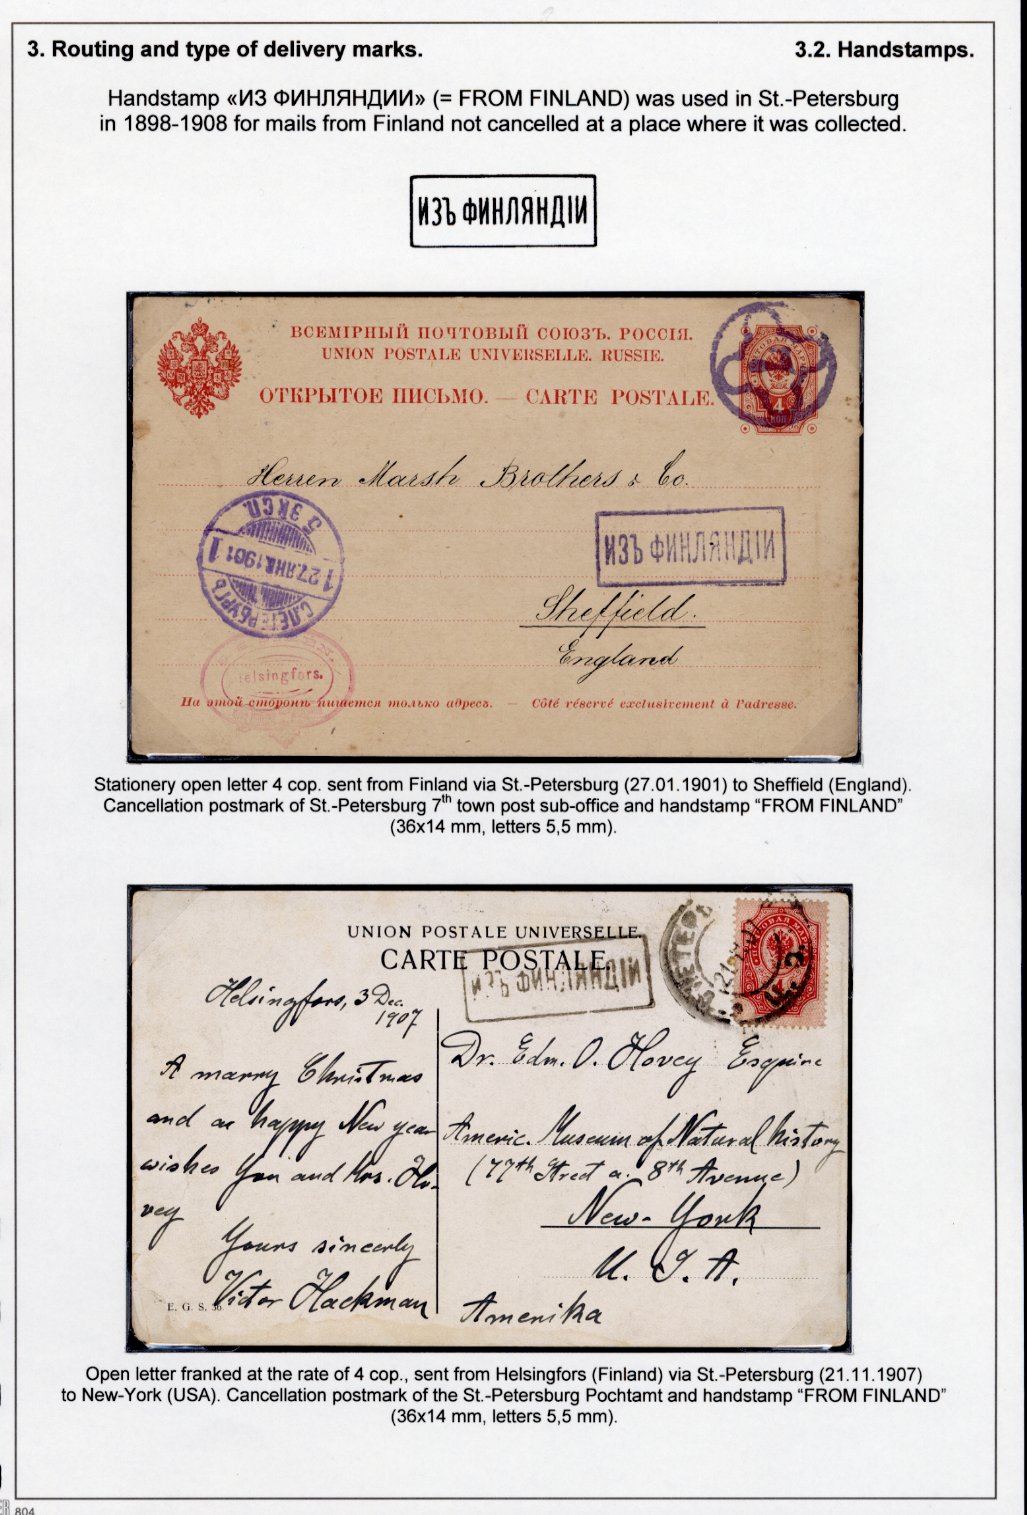 3. Routing and type of delivery marks. 3.2. Handstamps.
Handstamp «ИЗ ФИНЛЯНДИИ» (= FROM FINLAND) was used in St.-Petersburg
in 1898-1908 for mails from Finland not cancelled at a place where it was collected.
ИЗЪ ФИНЛЯНДІИ
ВСЕМІРНЫЙ ПОЧТОВЫЙ СОЮЗЪ. РОССІЯ.
UNION POSTALE UNIVERSELLE. RUSSIE.
ОТКРЫТОЕ ПИСЬМО. — CARTE POSTALE.
4
КОП
Herren Marsh Brothers & Co.
5 ЭКСП.
1 27.ЯНВ.1901 1
С.ПЕТЕРБУРГЪ
ИЗЪ ФИНЛЯНДІИ
Sheffield.
England
Helsingfors.
На этой сторонѣ пишется только адресъ. — Côté réservé exclusivement à l'adresse.
Stationery open letter 4 cop. sent from Finland via St.-Petersburg (27.01.1901) to Sheffield (England).
Cancellation postmark of St.-Petersburg 7th town post sub-office and handstamp “FROM FINLAND”
(36x14 mm, letters 5,5 mm).
UNION POSTALE UNIVERSELLE.
CARTE POSTALE.
ИЗЪ ФИНЛЯНДІИ
Helsingfors, 3 Dec.
1907
A marry Christmas
and a happy New year
wishes You and Mrs. Ho-
vey
Yours sincerly
Victor Hackman
E. G. S. 36.
Dr. Edm. O. Hovey Esquire
Americ. Museum of Natural history
(77th Street a. 8th Avenue)
New-York
U. S. A.
Amerika
Open letter franked at the rate of 4 cop., sent from Helsingfors (Finland) via St.-Petersburg (21.11.1907)
to New-York (USA). Cancellation postmark of the St.-Petersburg Pochtamt and handstamp “FROM FINLAND”
(36x14 mm, letters 5,5 mm).
804